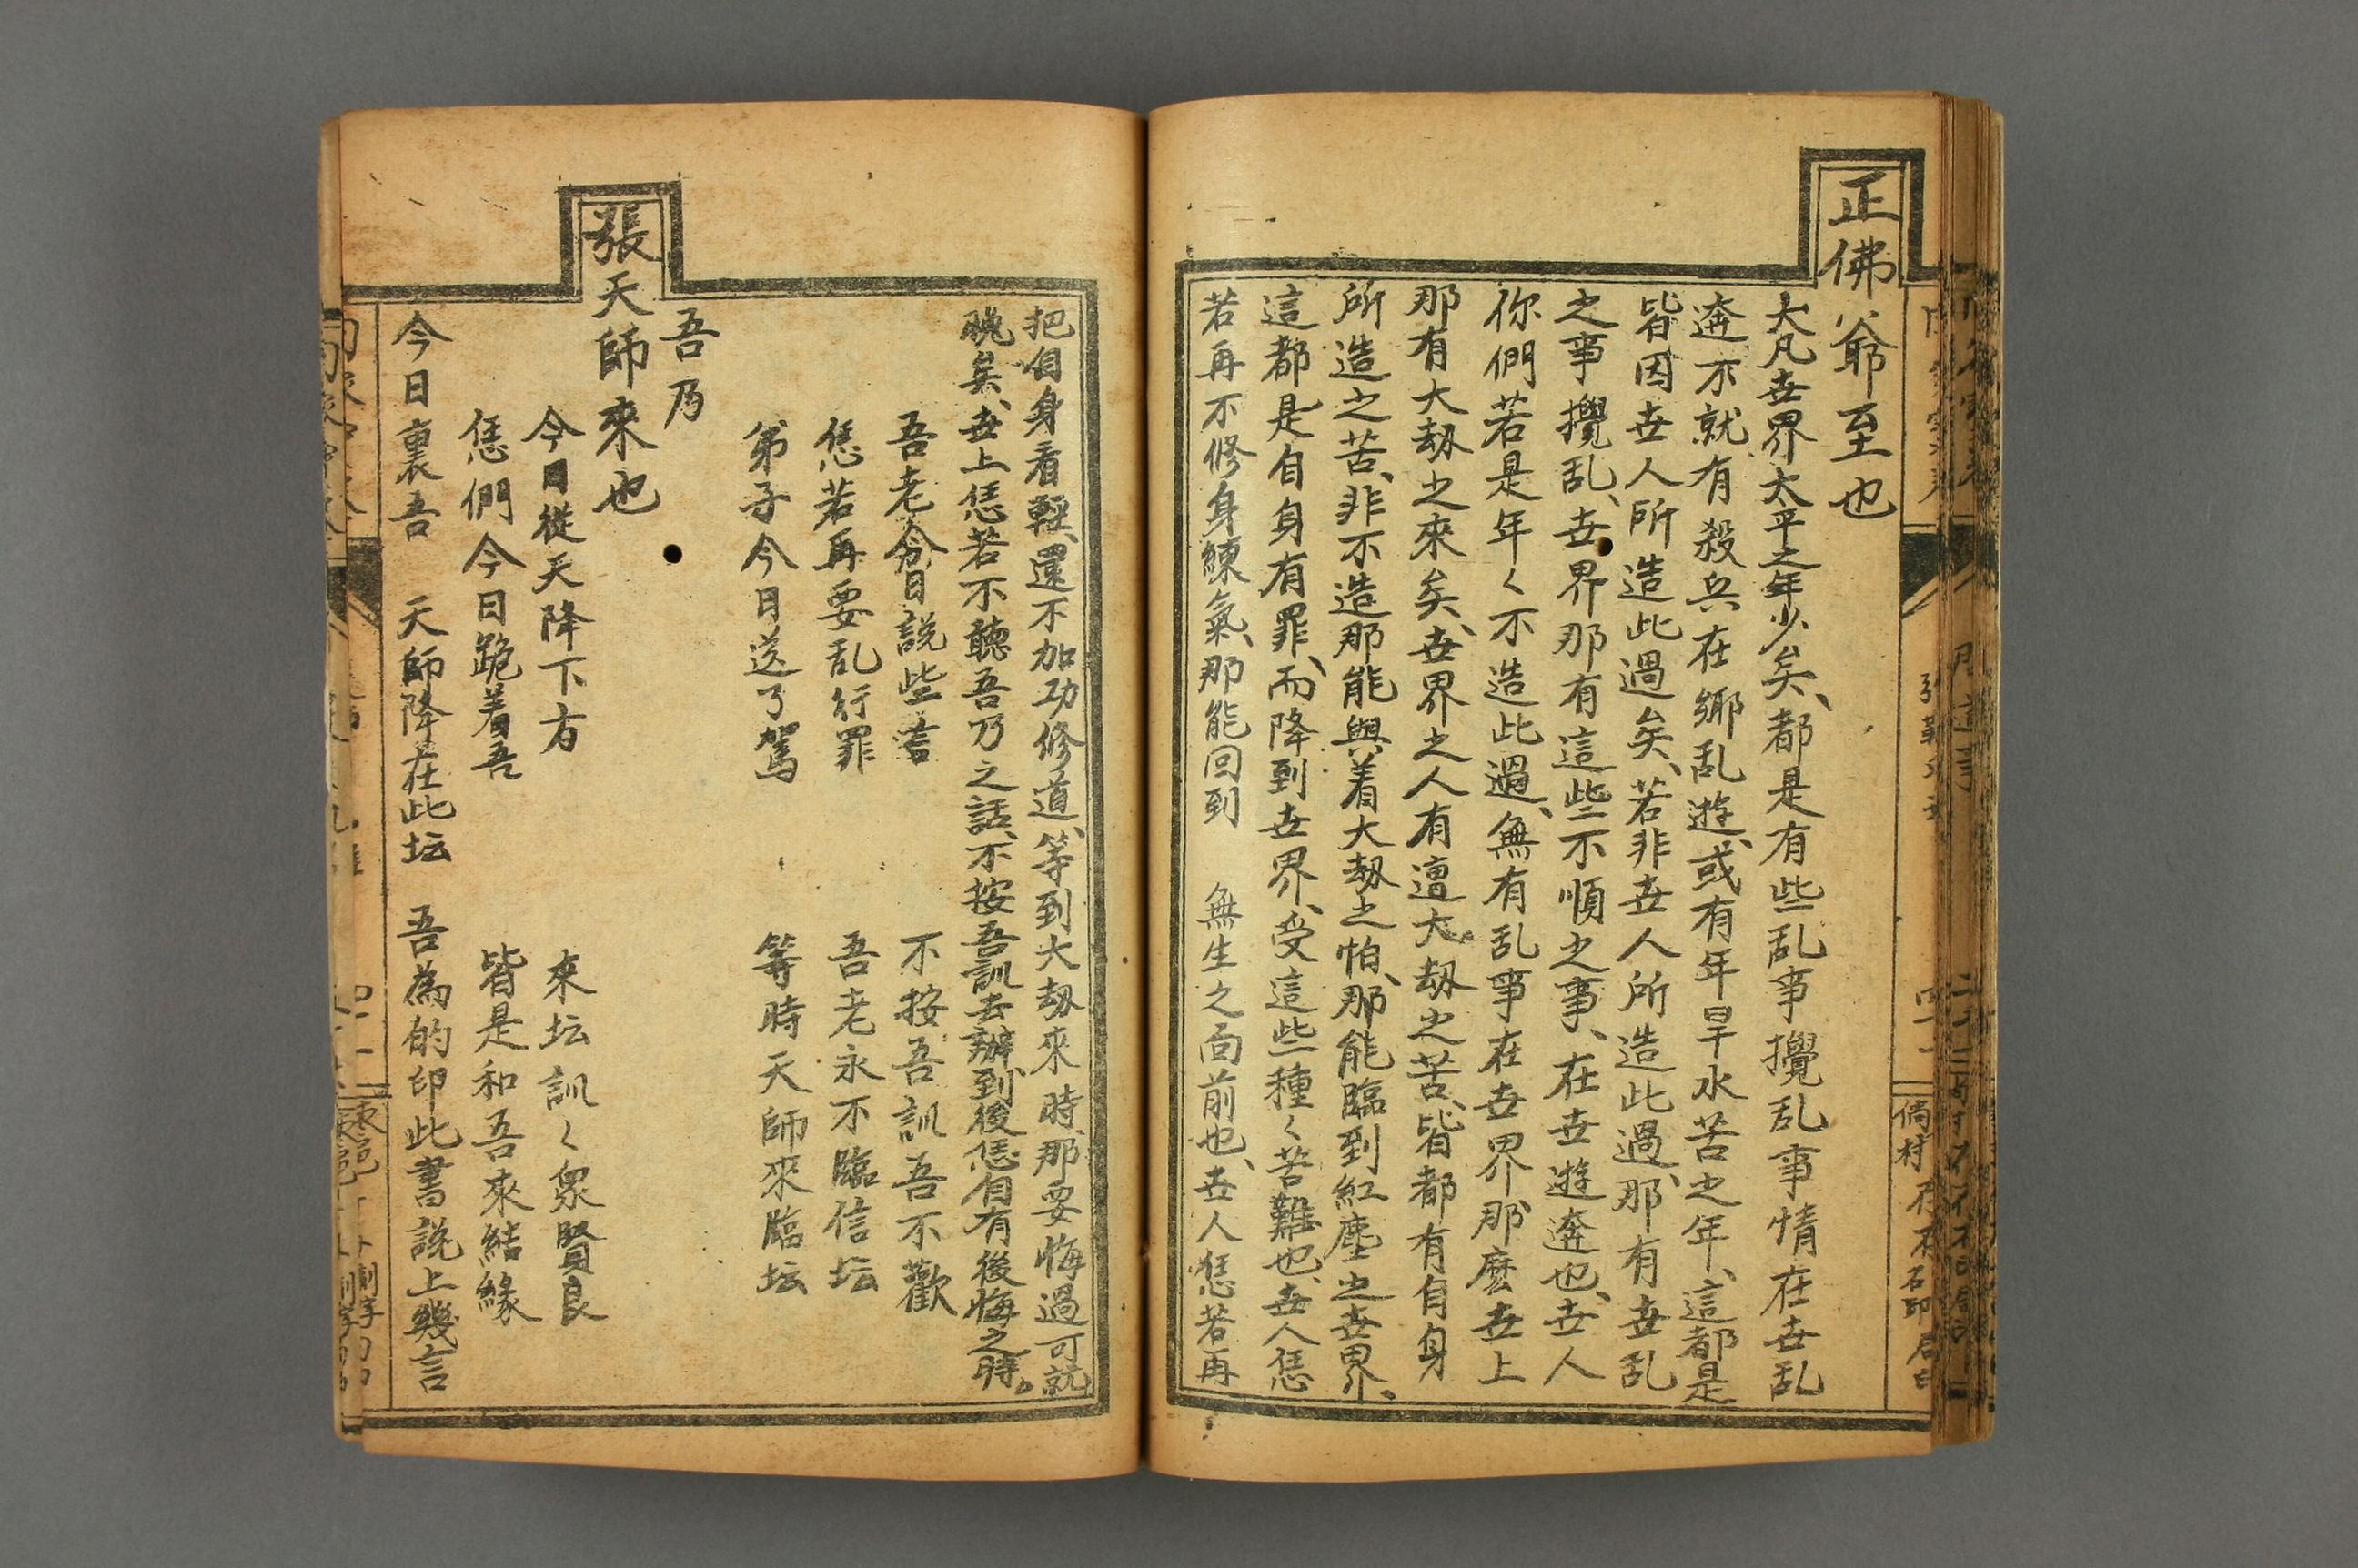 正佛爺至也
大凡世界太平之年少矣、都是有些乱事攪乱事情在世乱
遊不就有殺兵在鄉乱遊、或有年旱水苦之年、這都是
皆因世人所造此過矣、若非世人所造此過、那有世乱
之事攪乱、世界那有這些不順之事、在世遊遊也、世人
你們若是年く不造此過、無有乱事在世界那麽世上
那有大刼之來矣、世界之人有遭大刼之苦、皆都有自身
所造之苦、非不造那能與着大刼之怕、那能臨到紅塵之世界、
這都是自身有罪、而降到世界、受這些種く苦難也、世人恁
若再不修身練氣、那能回到 無生之面前也、世人恁若再
把自身看輕、還不加功修道、等到大刼來時、那要悔過可就
晚矣、世上恁若不聽吾乃之話、不按吾訓去辦、到後恁自有後悔之時。
吾老今日說些言 不按吾訓吾不歡
恁若再要乱行罪 吾老永不臨信坛
弟子今日送了駕 等時天師來臨坛
吾乃
張天師來也
今日從天降下方 來坛訓く衆賢良
恁們今日跪着吾 皆是和吾來結緣
今日裏吾 天師降在此坛 吾為的印此書說上幾言